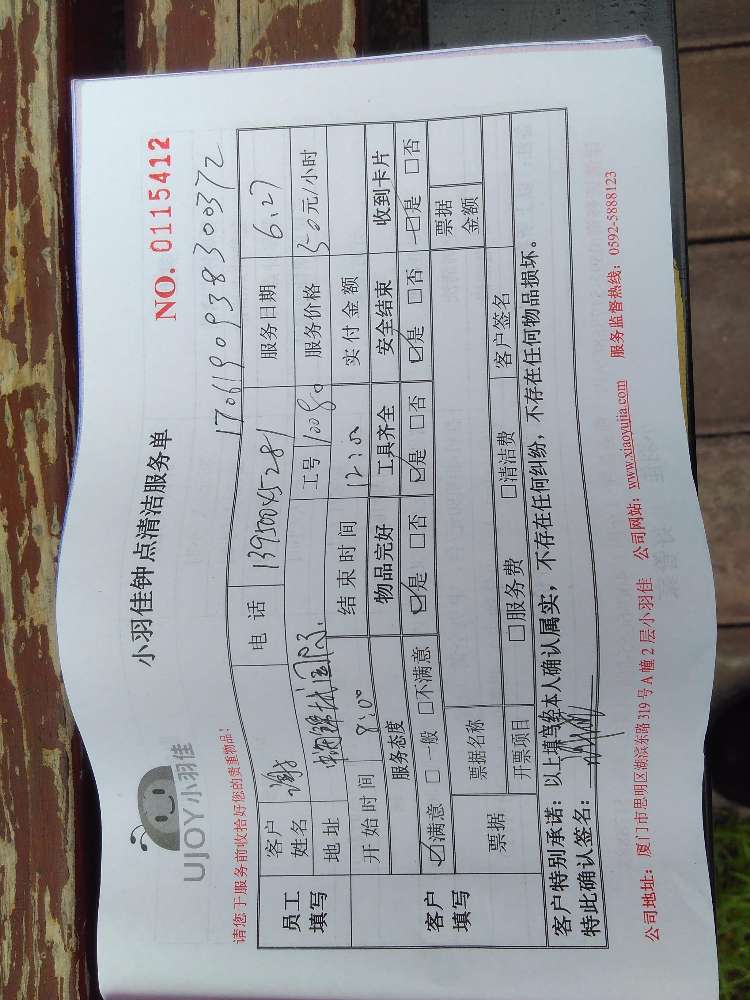 UJOY小羽佳
小羽佳钟点清洁服务单
NO. 0115412
请您于服务前收拾好您的贵重物品!
1706190938300372
员工填写
客户姓名 谢 电话 13950045281 服务日期 6.27
地址 国际 工号 10080 服务价格 50元/小时
开始时间 8:00 结束时间 12:00 实付金额
客户填写
服务态度 物品完好 工具齐全 安全结束 收到卡片
☑满意 □一般 □不满意 ☑是 □否 ☑是 □否 ☑是 □否 ☑是 □否
票据 票据名称 票据金额
开票项目 □服务费 □清洁费 客户签名
客户特别承诺：以上填写经本人确认属实，不存在任何纠纷，不存在任何物品损坏。
特此确认签名：
公司地址：厦门市思明区湖滨东路319号A幢2层小羽佳 公司网站：www.xiaoyujia.com 服务监督热线：0592-5888123